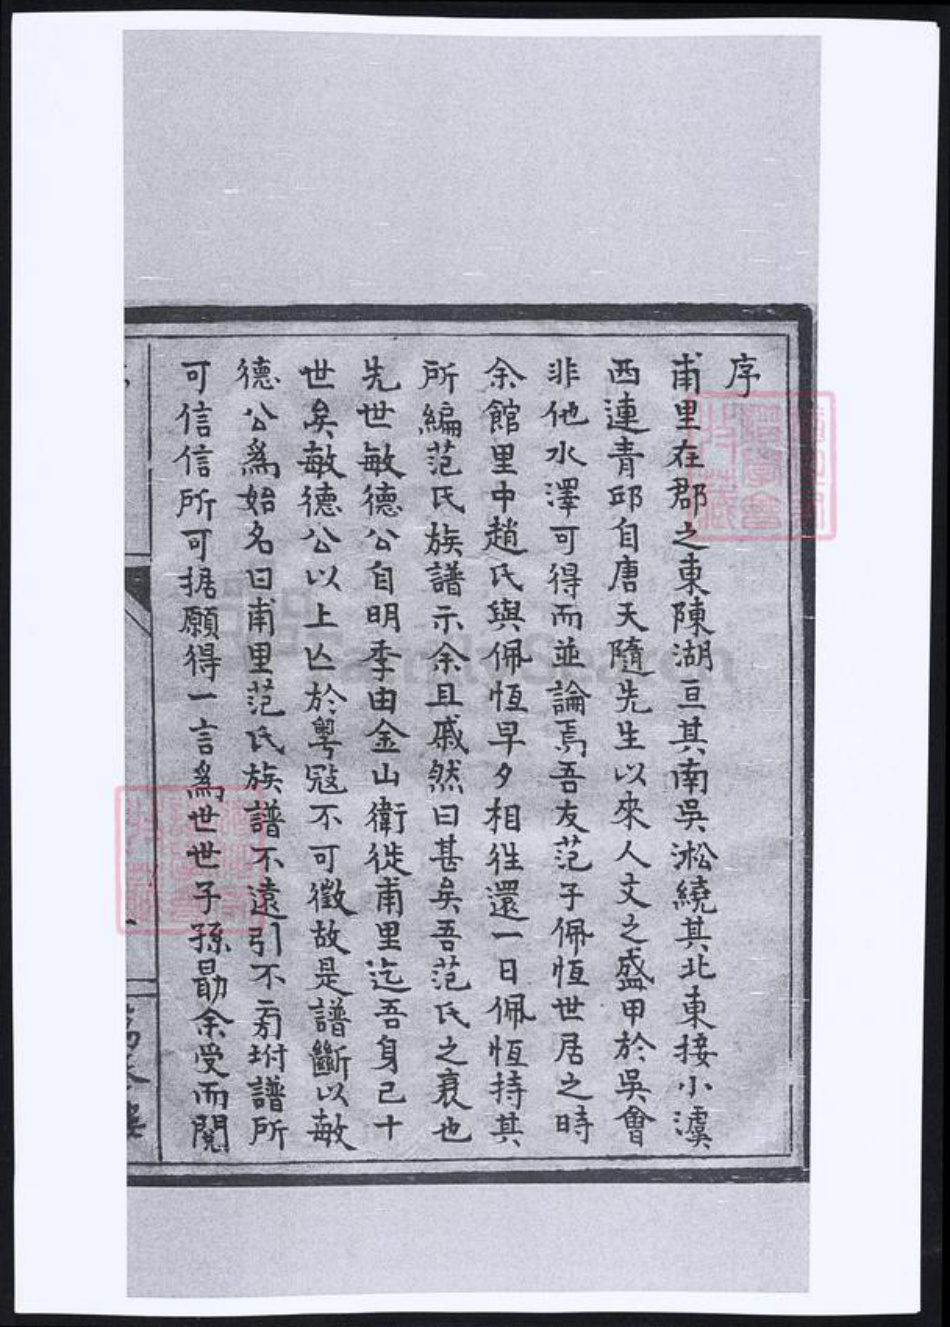 序
甫里在郡之東陳湖亘其南吳淞繞其北東接小澞
西連青邱自唐天隨先生以來人文之盛甲於吳會
非他水澤可得而並論焉吾友范子佩恆世居之時
余館里中趙氏與佩恆早夕相往還一日佩恆持其
所編范氏族譜示余且戚然曰甚矣吾范氏之衰也
先世敏德公自明季由金山衛徙甫里迄吾身已十
世矣敏德公以上亾於粤寇不可徵故是譜斷以敏
德公爲始名曰甫里范氏族譜不遠引不旁坿譜所
可信信所可据願得一言爲世世子孫勖余受而閱
FamilySearch